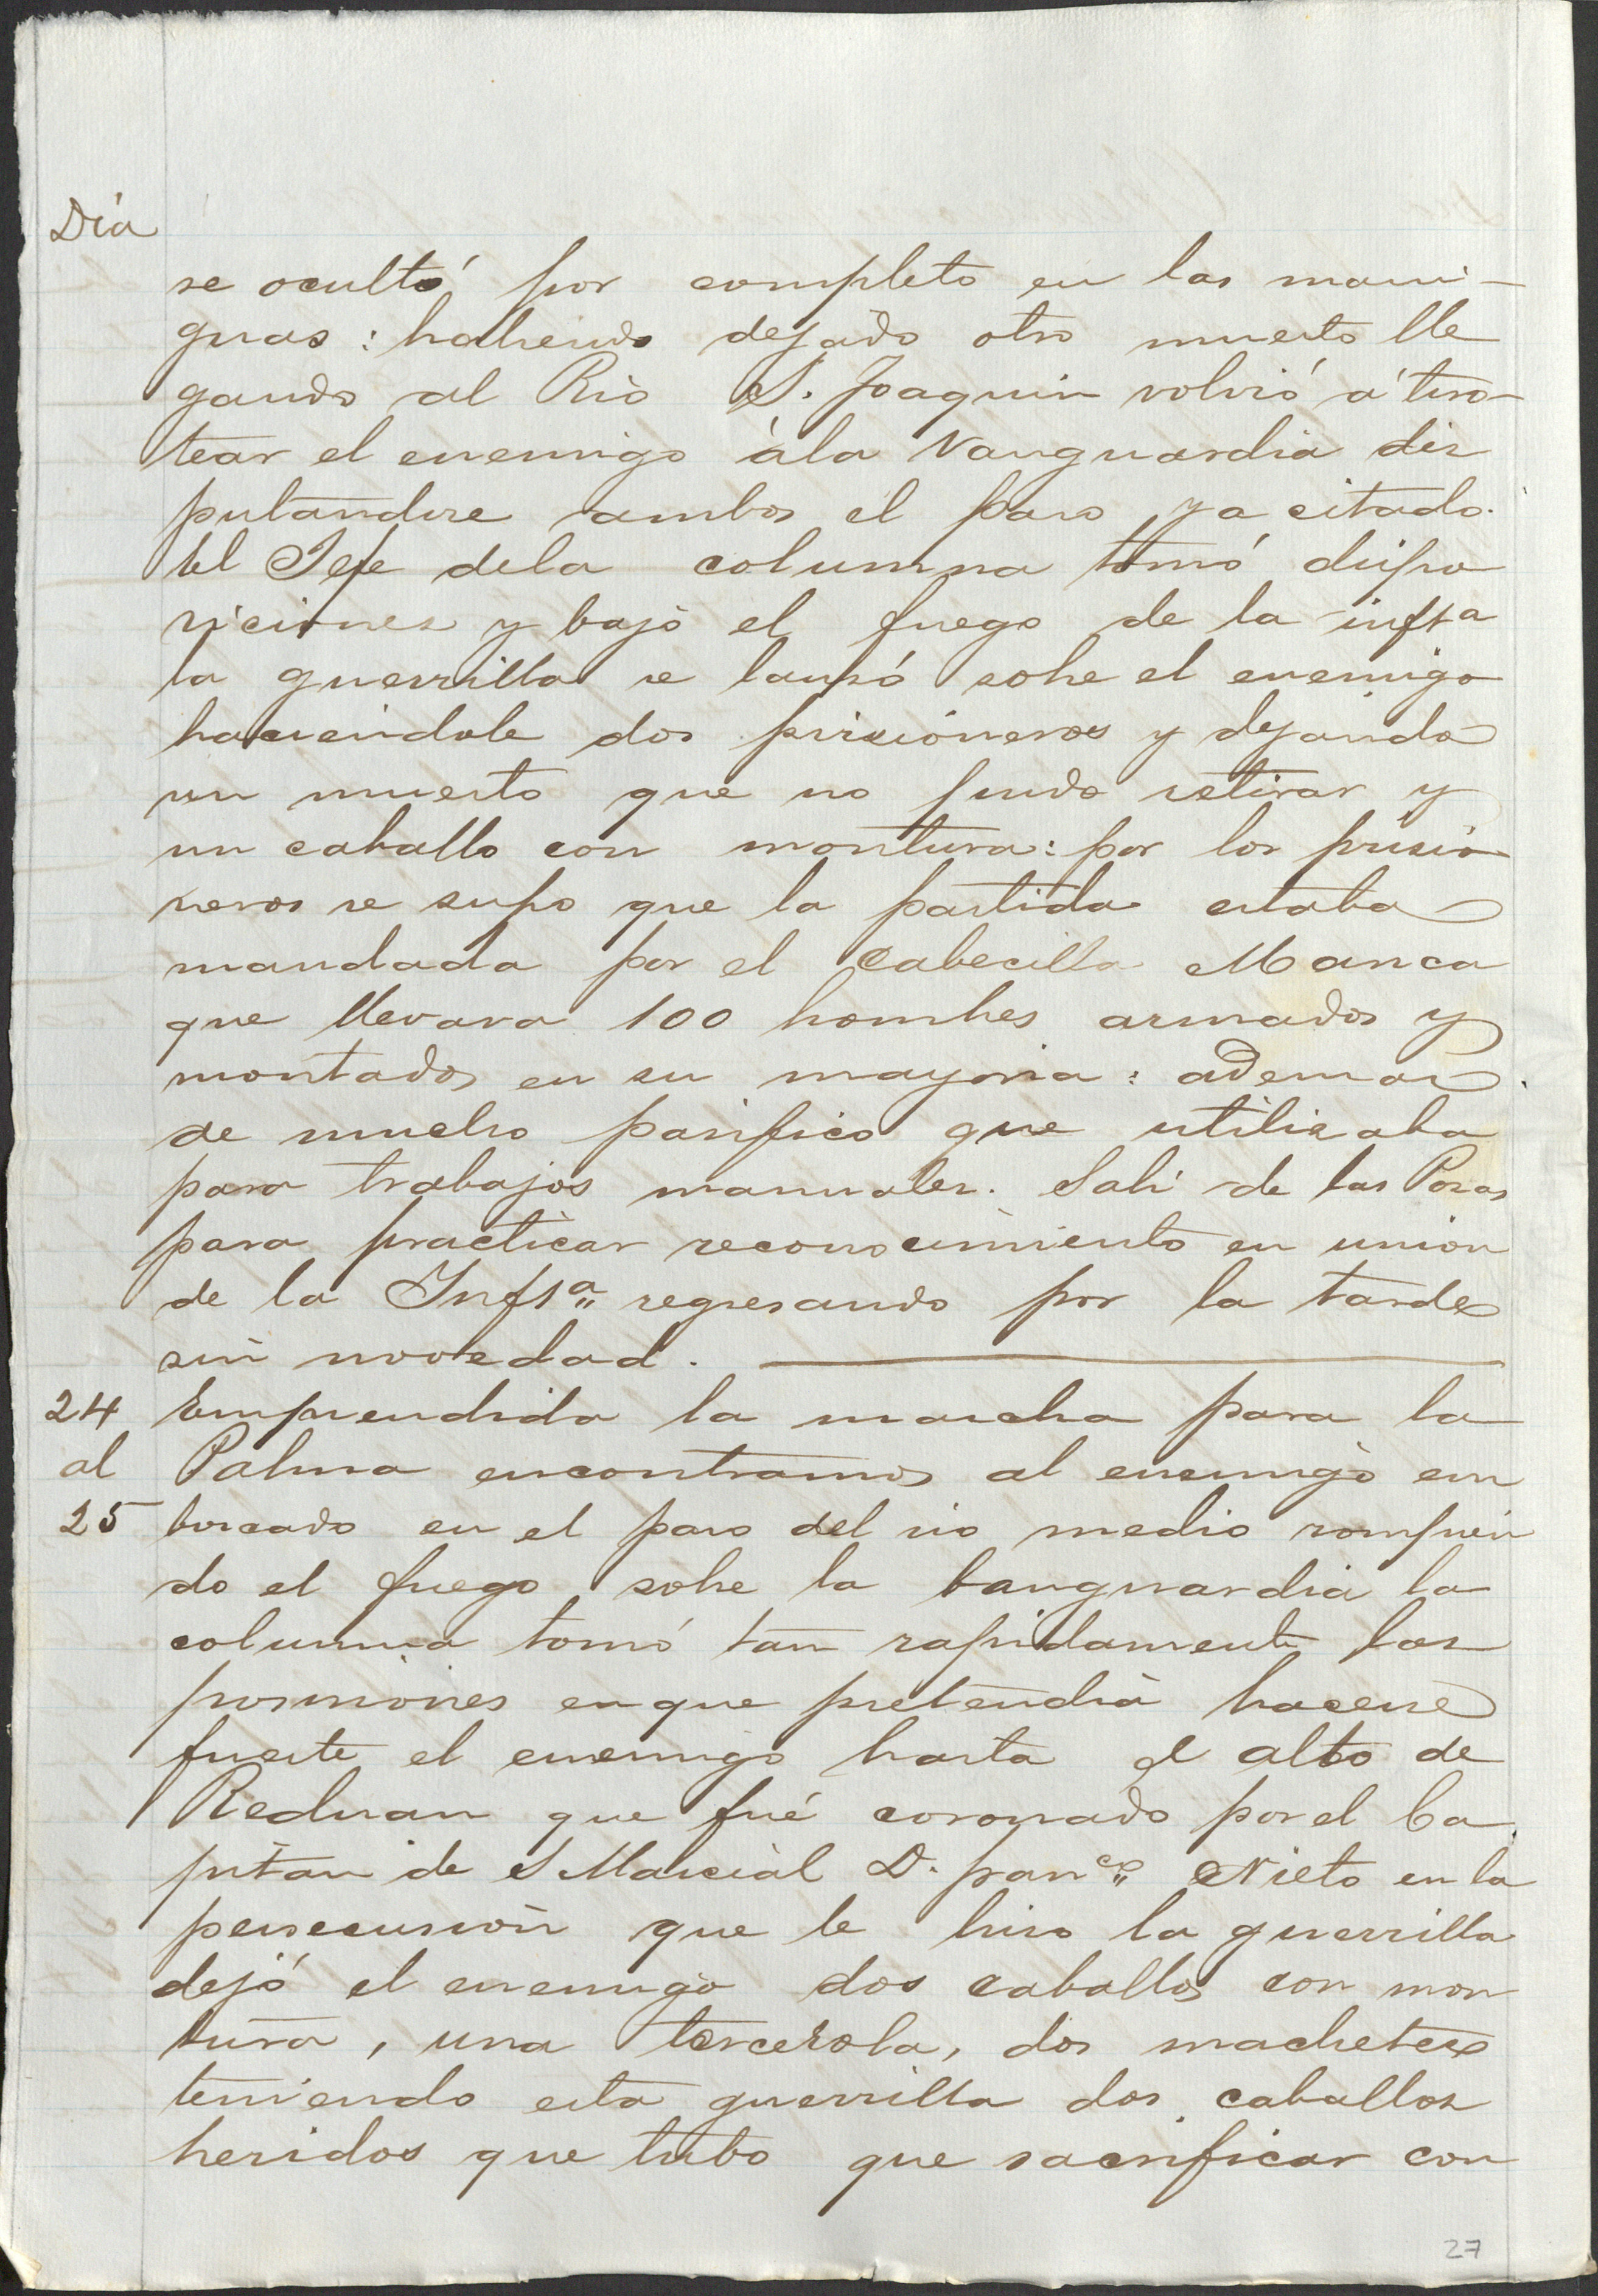 Dia
se ocultó por completo en las mani-
guas: habiendo dejado otro muerto lle
gando al Rio S. Joaquin volvió á tiro-
tear el enemigo ála Vanguardia dis
putandose ambos el paso ya citado.
El Jefe dela columna tomó dispo
siciones y bajo el fuego de la infta
la guerrilla se lanzó sobre el enemigo
haciendole dos prisioneros y dejando
un muerto que no pudo retirar y
un caballo con montura: por los prisio
neros se supo que la partida estaba
mandada por el Cabecilla Manca
que llevava 100 hombres armados y
montados en su mayoria: ademas
de mucho pasifico que utilizaba
para trabajos manuales. Salí de las Pozas
para practicar reconocimiento en union
de la Infta regresando por la tarde
sin novedad.
24 Emprendida la marcha para la
al Palma encontramos al enemigo em
25 boscado en el paso del rio medio rompien
do el fuego sobre la banguardia la
columna tomó tan rapidamente las
posiniones enque pretendia hacerse
fuerte el enemigo hasta el alto de
Reduan que fué coronado por el Ca
pitan de S Marcial D. franco Nieto en la
persecusion que le hiso la guerrilla
dejó el enemigo dos caballos con mon
tura, una tercerola, dos machetes
teniendo esta guerrilla dos caballos
heridos que tubo que sacrificar con
27